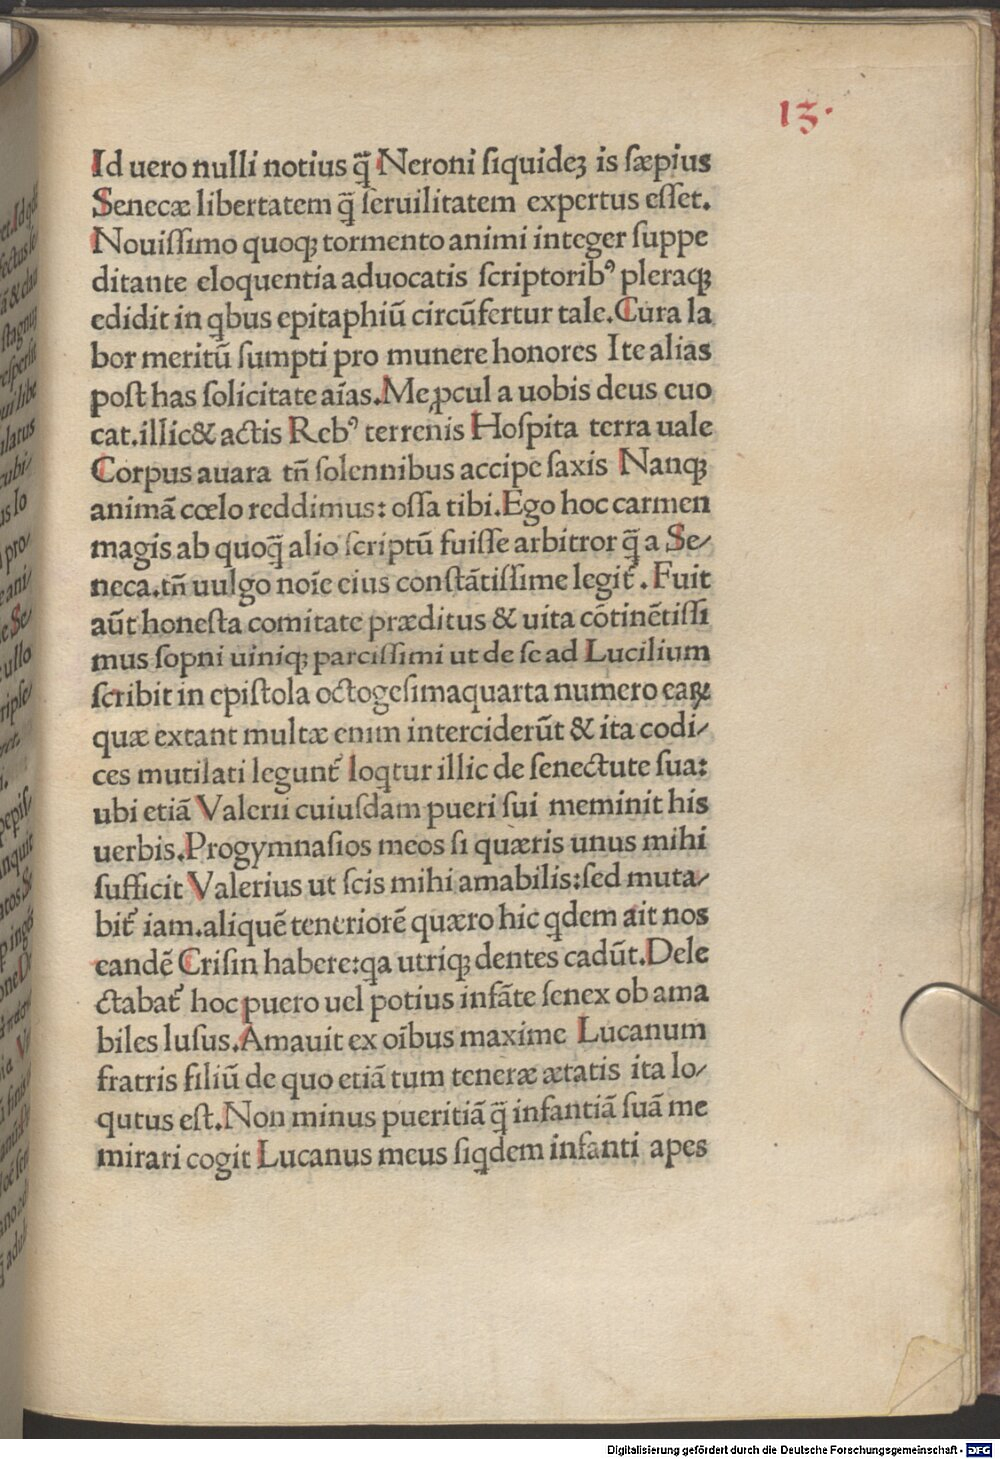 13.
Id uero nulli notius q̃ Neroni siquideꝫ is sæpius
Senecæ libertatem q̃ seruilitatem expertus esset.
Nouissimo quoqꝫ tormento animi integer suppe
ditante eloquentia aduocatis scriptoribꝰ pleraqꝫ
edidit in qbus epitaphiũ circũfertur tale. Cura la
bor meritũ sumpti pro munere honores Ite alias
post has solicitate aĩas. Me ꝓcul a uobis deus euo
cat. illic & actis Rebꝰ terrenis Hospita terra uale
Corpus auara tñ solennibus accipe saxis Nanqꝫ
animã cœlo reddimus: ossa tibi. Ego hoc carmen
magis ab quoq̃ alio scriptũ fuisse arbitror q̃ a Se/
neca. tñ uulgo noĩe eius constãtissime legit̃. Fuit
aũt honesta comitate præditus & uita cõtinẽtissi
mus sopni uiniqꝫ parcissimi ut de se ad Lucilium
scribit in epistola octogesimaquarta numero eaꝝ
quæ extant multæ enim interciderũt & ita codi/
ces mutilati legunt̃ loqtur illic de senectute sua:
ubi etiã Valerii cuiusdam pueri sui meminit his
uerbis. Progymnasios meos si quæris unus mihi
sufficit Valerius ut scis mihi amabilis: sed muta/
bit̃ iam. aliquẽ teneriorẽ quæro hic qdem ait nos
eandẽ Crisin habere: qa utriqꝫ dentes cadũt. Dele
ctabat̃ hoc puero uel potius infãte senex ob ama
biles lusus. Amauit ex oĩbus maxime Lucanum
fratris filiũ de quo etiã tum teneræ ætatis ita lo/
qutus est. Non minus pueritiã q̃ infantiã suã me
mirari cogit Lucanus meus siqdem infanti apes
Digitalisierung gefördert durch die Deutsche Forschungsgemeinschaft - DFG